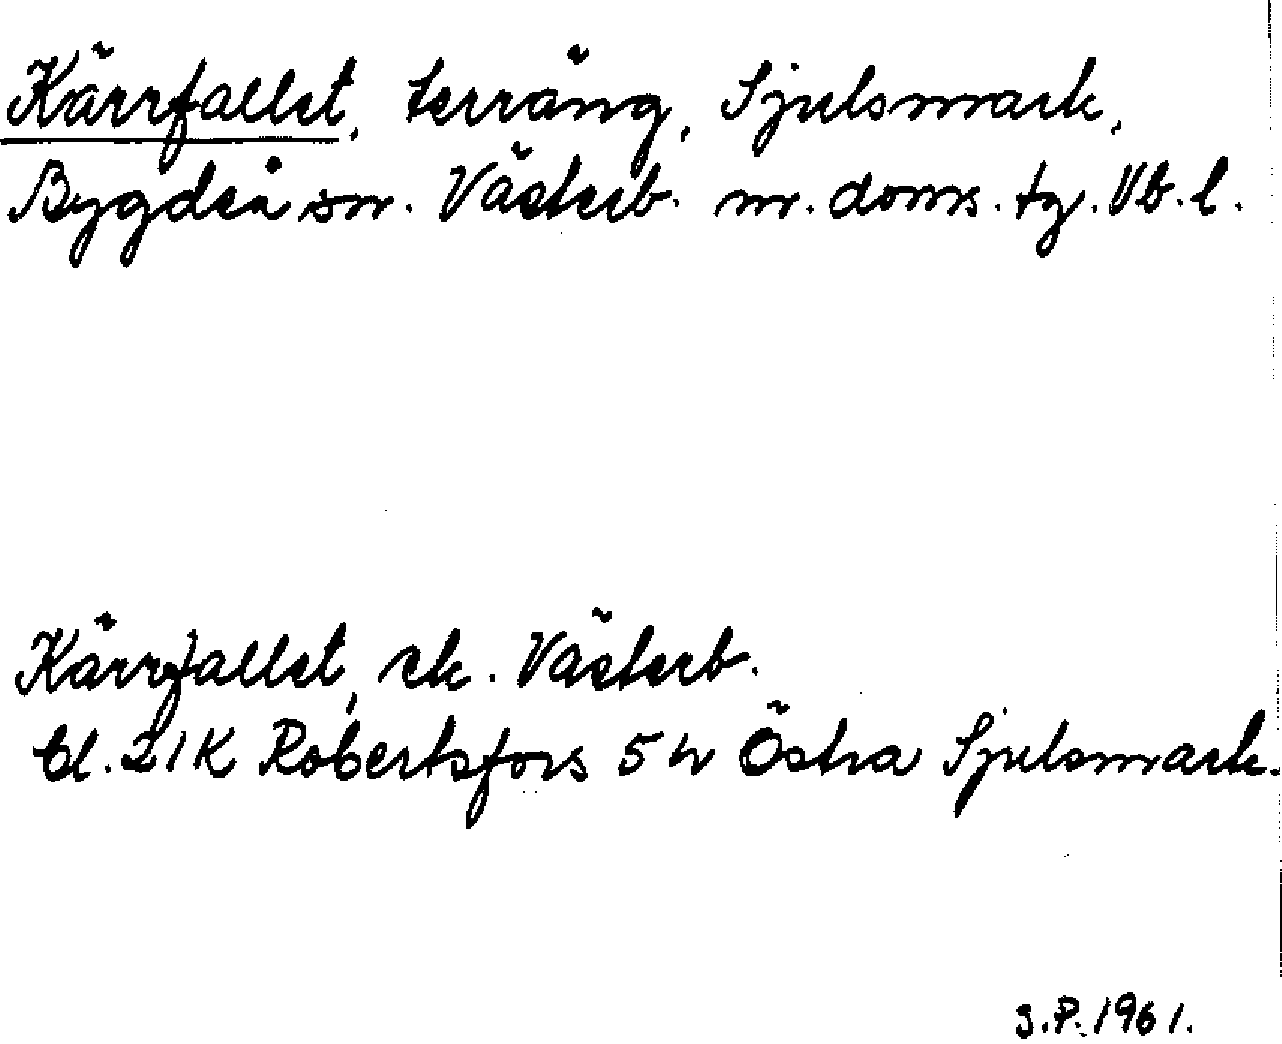 Kärrfallet, terräng, Sjulsmark,
Bygdeå sn. Västerb. nr. doms. tg. Vb. l.
Kärrfallet, ek. Västerb.
bl. 21K Robertsfors 5 h Östra Sjulsmark.
g.P. 1961.